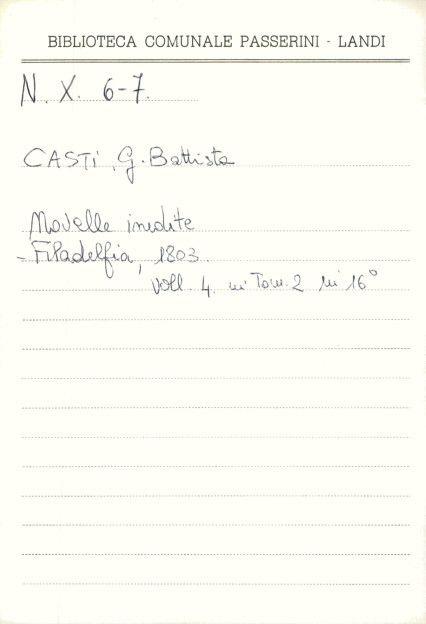 BIBLIOTECA COMUNALE PASSERINI - LANDI
N. X. 6-7.
CASTI, G. Battista
Novelle inedite
- Filadelfia, 1803.
voll. 4. in Tom. 2 in 16°